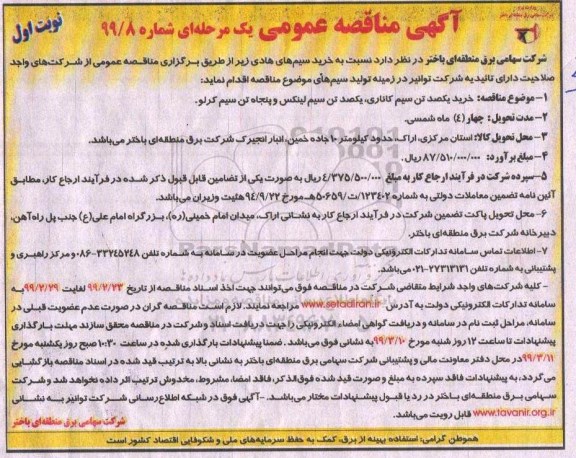 نوبت اول
آگهی مناقصه عمومی یک مرحله‌ای شماره ۹۹/۸
شرکت سهامی برق منطقه‌ای باختر در نظر دارد نسبت به خرید سیم‌های هادی زیر از طریق برگزاری مناقصه عمومی از شرکت‌های واجد
صلاحیت دارای تائیدیه شرکت توانیر در زمینه تولید سیم‌های موضوع مناقصه اقدام نماید:
۱- موضوع مناقصه: خرید یکصد تن سیم کاناری، یکصد تن سیم لینکس و پنجاه تن سیم کرلو.
۲- مدت تحویل: چهار (٤) ماه شمسی.
۳- محل تحویل کالا: استان مرکزی، اراک، حدود کیلومتر ۱۰ جاده خمین، انبار انجیرک شرکت برق منطقه‌ای باختر می‌باشد.
۴- مبلغ برآورد: ۸۷/۵۱۰/۰۰۰/۰۰۰ ریال.
۵- سپرده شرکت در فرآیند ارجاع کار به مبلغ ٤/۳۷۵/۵۰۰/۰۰۰ ریال به صورت یکی از تضامین قابل قبول ذکر شده در فرآیند ارجاع کار، مطابق
آئین نامه تضمین معاملات دولتی به شماره ۱۲۳٤۰۲/ت۵۰۶۵۹هـ مورخ ۹٤/۹/۲۲ هئیت وزیران می‌باشد.
۶- محل تحویل پاکت تضمین شرکت در فرآیند ارجاع کار به نشانی اراک، میدان امام خمینی(ره)، بزرگراه امام علی(ع) جنب پل راه‌آهن،
دبیرخانه شرکت برق منطقه‌ای باختر.
۷- اطلاعات تماس سامانه تدارکات الکترونیکی دولت جهت انجام مراحل عضویت در سامانه به شماره تلفن ۳۳۲٤۵۲٤۸-۰۸۶ و مرکز راهبری و
پشتیبانی به شماره تلفن ۲۷۳۱۳۱۳۱-۰۲۱ می‌باشد.
- کلیه شرکت‌های واجد شرایط متقاضی شرکت در مناقصه فوق می‌توانند جهت اخذ اسناد مناقصه از تاریخ ۹۹/۲/۲۳ لغایت ۹۹/۲/۲۹ به
سامانه تدارکات الکترونیکی دولت به آدرس www.setadiran.ir مراجعه نمایند. لازم است مناقصه گران در صورت عدم عضویت قبلی در
سامانه، مراحل ثبت نام در سامانه و دریافت گواهی امضاء الکترونیکی را جهت دریافت اسناد و شرکت در مناقصه محقق سازند. مهلت بارگذاری
پیشنهادات تا ساعت ۱۲ روز شنبه مورخ ۹۹/۳/۱۰ به نشانی فوق می‌باشد. ضمنا پیشنهادات بارگذاری شده در ساعت ۱۰:۳۰ صبح روز یکشنبه مورخ
۹۹/۳/۱۱ در محل دفتر معاونت مالی و پشتیبانی شرکت سهامی برق منطقه‌ای باختر به نشانی بالا به ترتیب قید شده در اسناد مناقصه بازگشایی
می‌گردد. به پیشنهادات فاقد سپرده به مبلغ و صورت قید شده فوق‌الذکر، فاقد امضاء، مشروط، مخدوش ترتیب اثر داده نخواهد شد و شرکت
سهامی برق منطقه‌ای باختر در رد یا قبول پیشنهادات مختار می‌باشد. - آگهی فوق در شبکه اطلاع رسانی شرکت توانیر به نشانی
www.tavanir.org.ir قابل رویت می‌باشد.
شرکت سهامی برق منطقه‌ای باختر
هموطن گرامی: استفاده بهینه از برق، کمک به حفظ سرمایه‌های ملی و شکوفایی اقتصاد کشور است